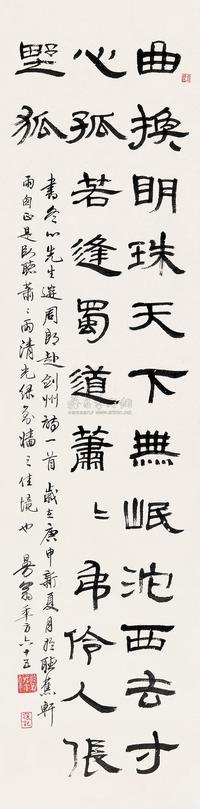 曲換明珠天下無岷沱西去寸
心孤若逢蜀道蕭〻弔伶人張
野狐
書冬心先生送周郎赴劍州詩一首 歲在庚申新夏月於聽蕉軒
雨窗正是臥聽蕭〻雨清光綠牆之佳境也 曼翁年方六十五